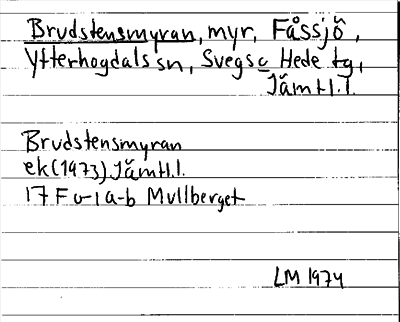 Brudstensmyran, myr, Fåssjö,
Ytterhogdals sn, Svegs o Hede tg,
Jämtl.l.
Brudstensmyran
ek (1973) Jämtl.l.
17 F 0-1 a-b Mullberget
LM 1974